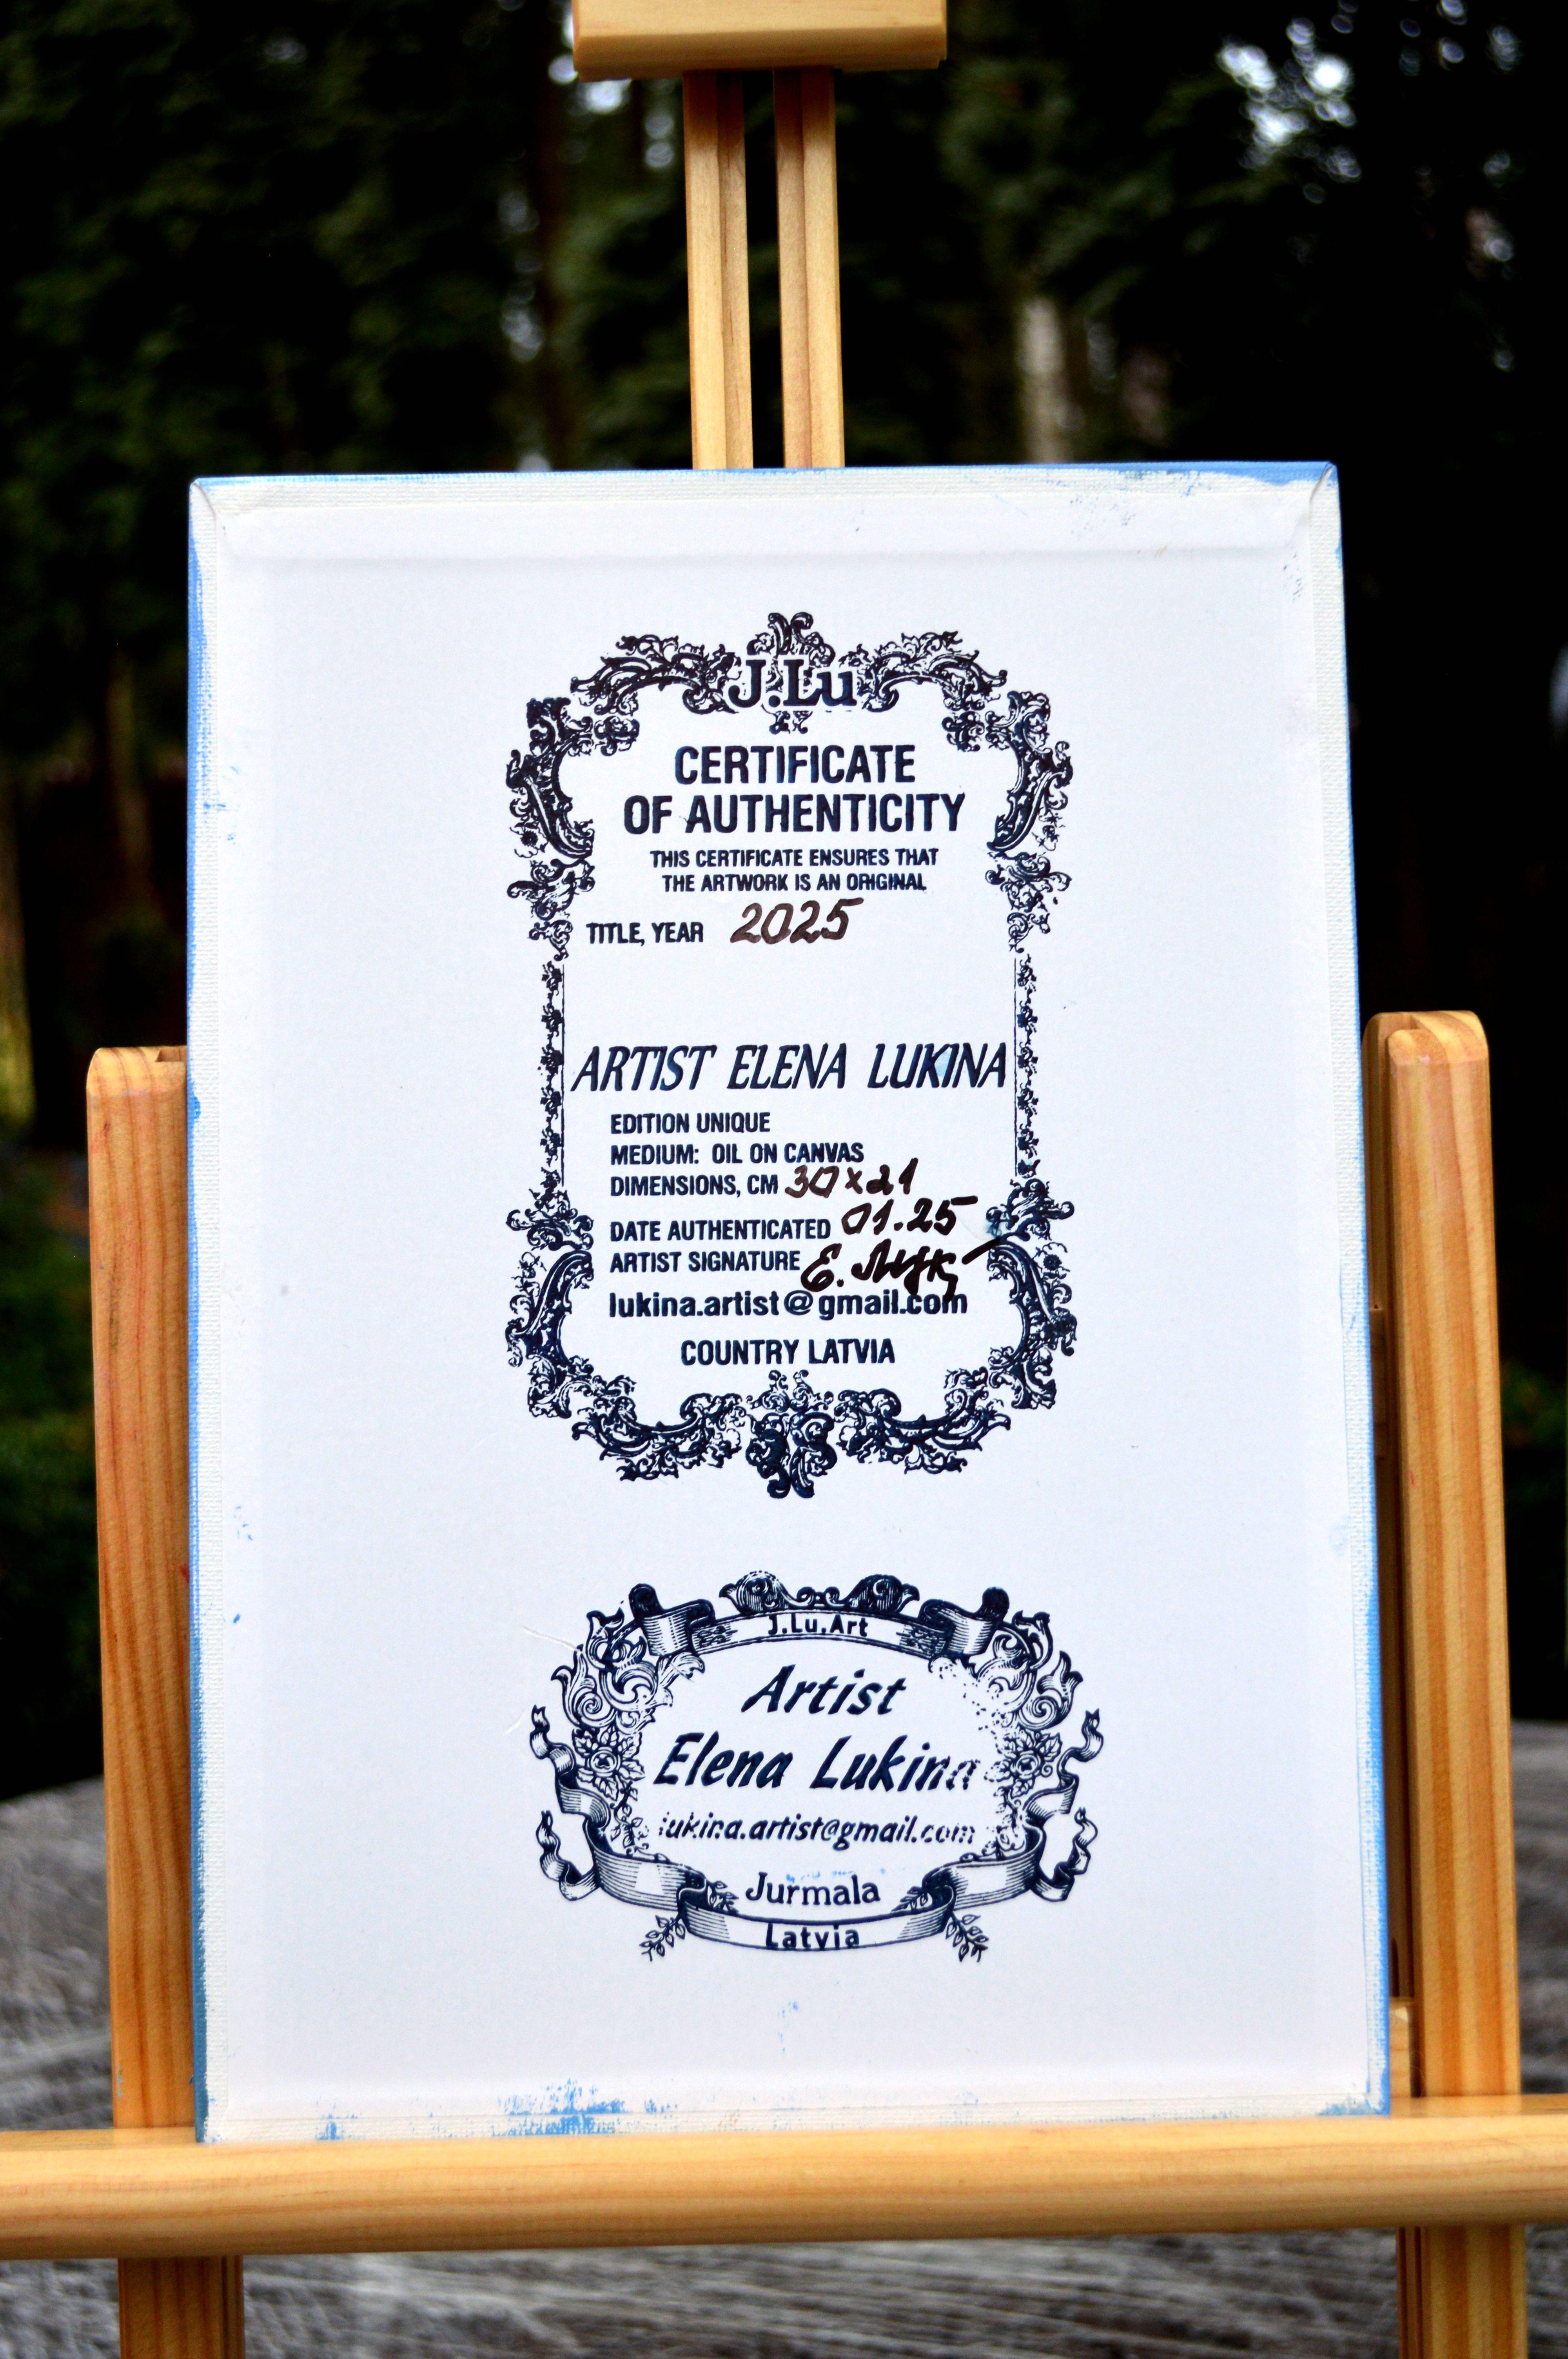 J.Lu
CERTIFICATE
OF AUTHENTICITY
THIS CERTIFICATE ENSURES THAT
THE ARTWORK IS AN ORIGINAL
TITLE, YEAR 2025
ARTIST ELENA LUKINA
EDITION UNIQUE
MEDIUM: OIL ON CANVAS
DIMENSIONS, CM 30x21
DATE AUTHENTICATED 01.25
ARTIST SIGNATURE Е. Лук
lukina.artist@gmail.com
COUNTRY LATVIA
J.Lu.Art
Artist
Elena Lukina
lukina.artist@gmail.com
Jurmala
Latvia